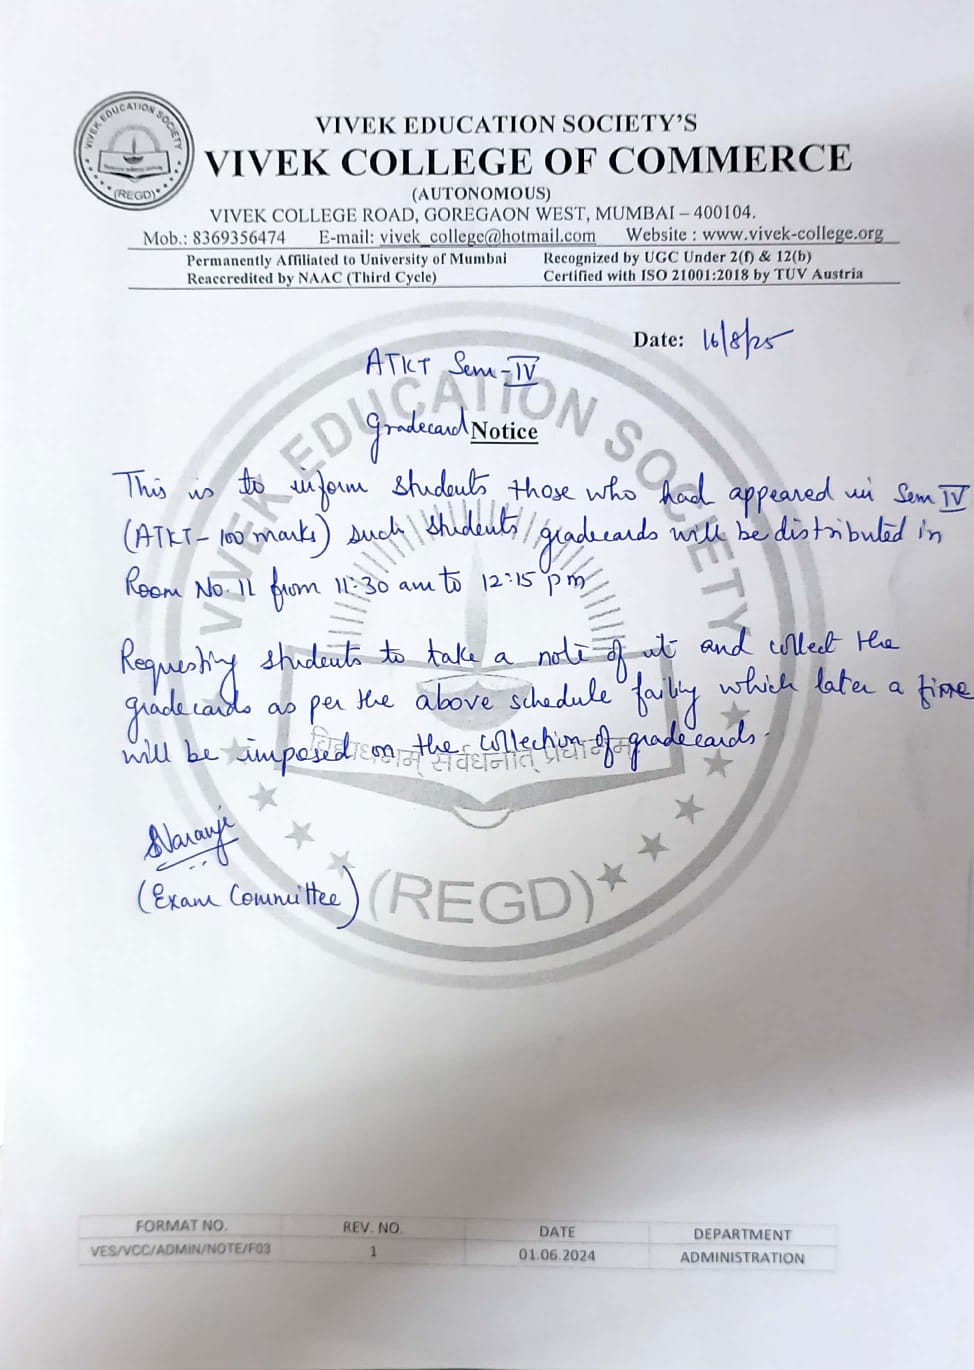 VIVEK EDUCATION SOCIETY
(REGD)
VIVEK EDUCATION SOCIETY'S
VIVEK COLLEGE OF COMMERCE
(AUTONOMOUS)
VIVEK COLLEGE ROAD, GOREGAON WEST, MUMBAI – 400104.
Mob.: 8369356474 E-mail: vivek_college@hotmail.com Website : www.vivek-college.org
Permanently Affiliated to University of Mumbai Recognized by UGC Under 2(f) & 12(b)
Reaccredited by NAAC (Third Cycle) Certified with ISO 21001:2018 by TUV Austria
Date: 16/8/25
ATKT Sem-IV
Gradecard Notice
This is to inform students those who had appeared in Sem IV
(ATKT- 100 marks) such students gradecards will be distributed in
Room No. 11 from 11:30 am to 12:15 pm
Requesting students to take a note of it and collect the
gradecards as per the above schedule failing which later a fine
will be imposed on the collection of gradecards.
(Exam Committee)
VIVEK EDUCATION SOCIETY
विद्याधनम् सर्वधनात् प्रधानम्
(REGD)
FORMAT NO. REV. NO. DATE DEPARTMENT
VES/VCC/ADMIN/NOTE/F03 1 01.06.2024 ADMINISTRATION